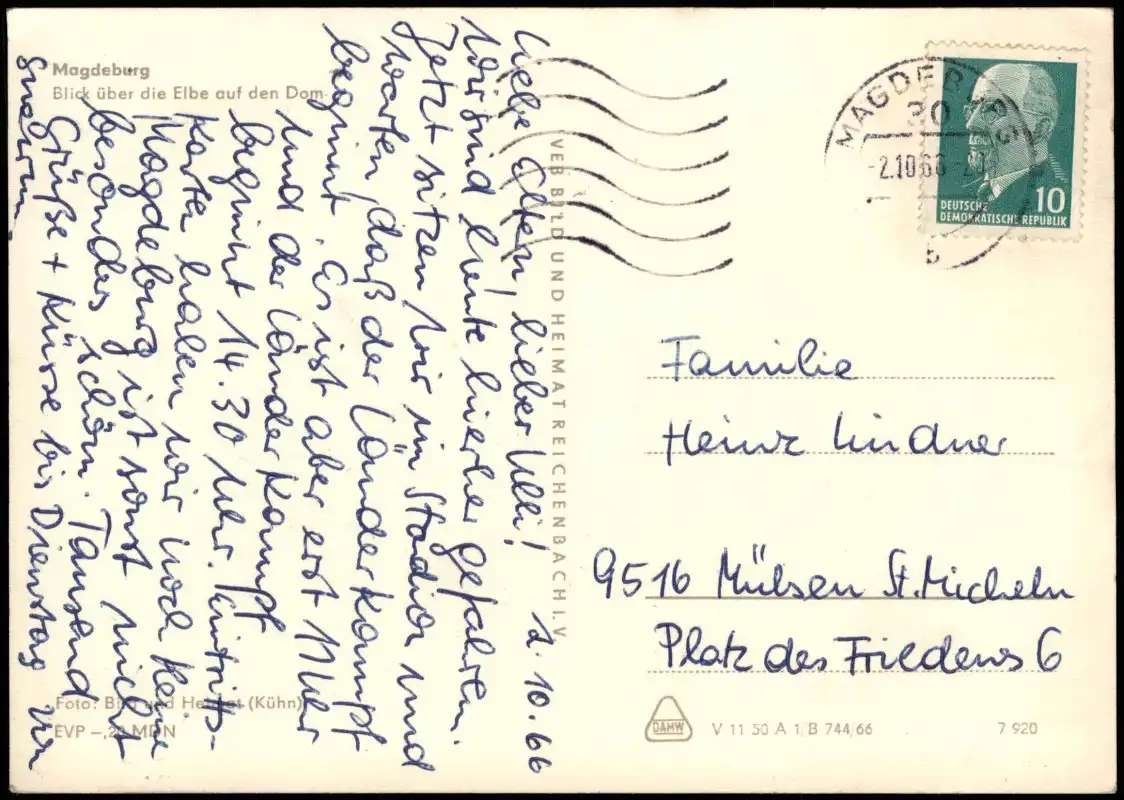 Magdeburg
Blick über die Elbe auf den Dom
Liebe Eltern, lieber Ulli! 2.10.66
Wir sind heute hierher gefahren.
Jetzt sitzen wir im Stadion und
warten, daß der Länderkampf
beginnt. Es ist aber erst 11 Uhr
und der Länderkampf
beginnt 14.30 Uhr. Eintritts-
Karten haben wir noch keine
Magdeburg ist sonst nicht
besonders schön. Tausend
Grüße + Küsse bis Dienstag
Foto: Bild und Heimat (Kühn)
EVP –,20 MDN
VEB BILD UND HEIMAT REICHENBACH I. V.
MAGDEBURG
30
-2.10.66-20
b
10
DEUTSCHE
DEMOKRATISCHE REPUBLIK
Familie
Heinz Lindner
9516 Mülsen St. Micheln
Platz des Friedens 6
DAMW
V 11 50 A 1, B 744, 66
7 920